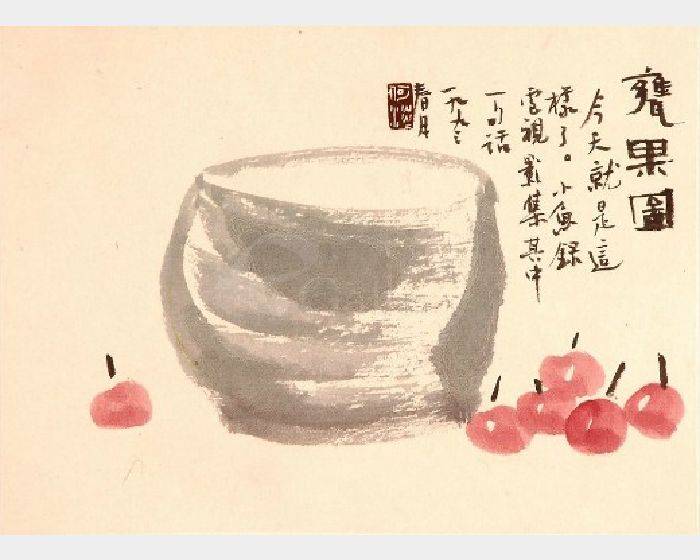 甕果圖
今天就是這
樣了。小魚錄
電視影集其中
一句話
一九九三
春月